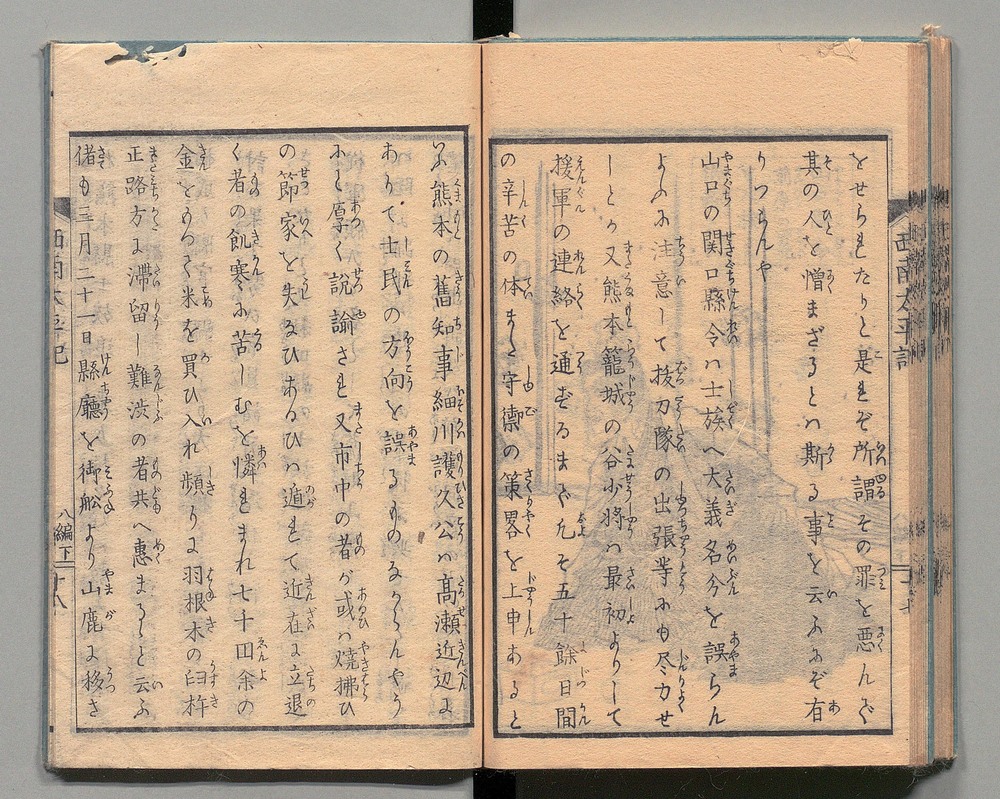 をせられたりと是れぞ所謂その罪を悪んで
其の人を憎まざるとハ斯る事を云ふぞ有
りつらんや
山口の関口縣令ハ士族へ大義名分を誤らん
よふ注意して抜刀隊の出張等にも尽力せ
しとか又熊本籠城の谷少将ハ最初よりして
援軍の連絡を通ずるまで凡そ五十餘日間
の辛苦の体また守禦の策畧を上申あると
いふ熊本の舊知事細川護久公ハ髙瀬近辺に
ありて士民の方向を誤るものなからんやう
にと厚く説諭され又市中の者が或ハ焼拂ひ
の節家を失るひあるひハ遁れて近在に立退
く者の飢寒に苦しむを憐まれ七千円余の
金をもつて米を買ひ入れ頻りに羽根木の臼杵
正路方に滞留し難渋の者共へ恵まるゝと云ふ
偖も三月二十一日縣廳を御舩より山鹿に移さ
西南太平記
八編下
十八